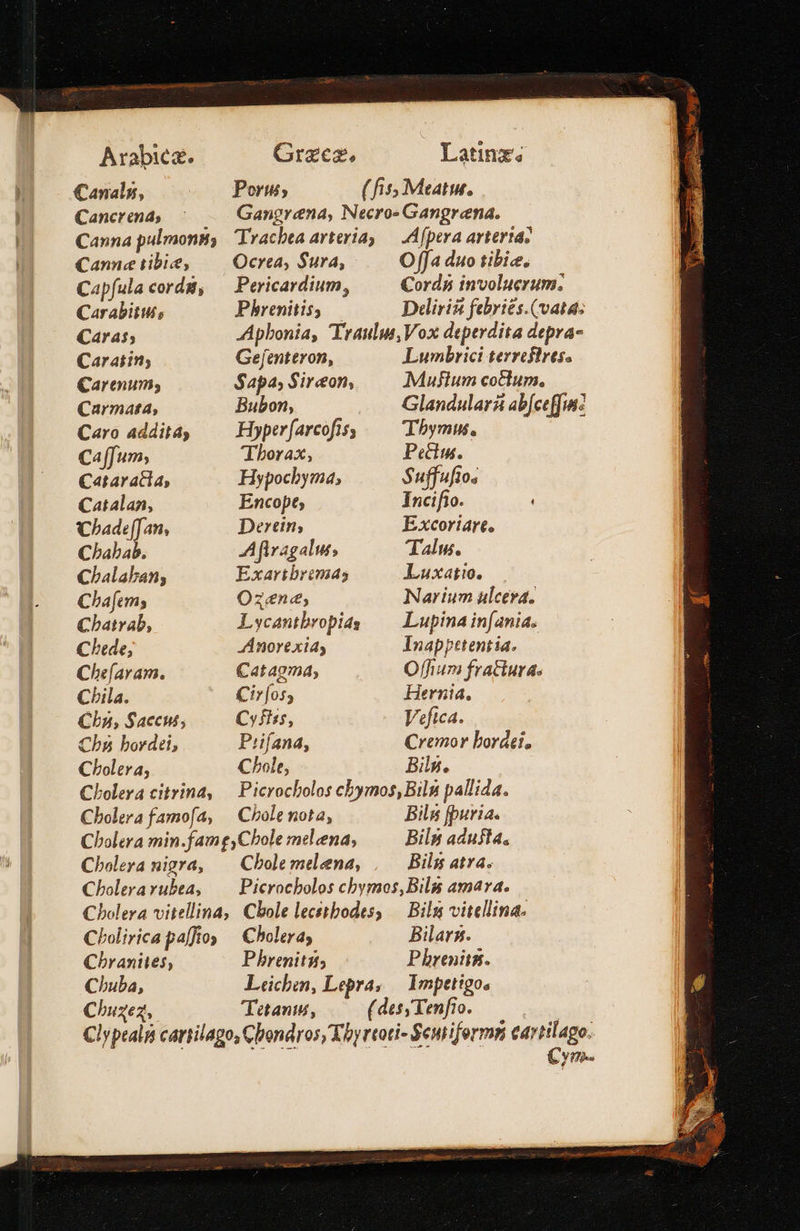 Arabicæ. Græcæ. Latinæ.
Canalis, Porus, (sis, Meatus.
Cancrena, Gangræna, Necro-Gangræna.
Canna pulmonis, Trachea arteria, Aſpera arteria.
Cannæ tibiæ, Ocrea, Sura, Oſſa duo tibiæ.
Capſula cordis, Pericardium, Cordis involucrum.
Carabitus, Phrenitis, Deliriũ febriës. (vata.
Caras, Aphonia, Traulus, Vox deperdita depra-
Caratin, Geſenteron, Lumbrici terreſtres.
Carenum, Sapa, Siræon, Muſtum coctum.
Carmata, Bubon, Glandulariũ abſceſſus.
Caro addita, Hyperſarcoſis, Thymus.
Caſſum, Thorax, Pectus.
Cataracta, Hypochyma, Suffuſio.
Catalan, Encope, Inciſio.
Chadeſſan, Derein, Excoriare.
Chahab. Aſtragalus, Talus.
Chalahan, Exarthremas Luxatio.
Chaſem, Ozænæ, Narium ulcera.
Chatrab, Lycanthropia, Lupina inſania.
Chede, Anorexia, Inappetentia.
Cheſaram. Catagma, Oſſium fractura.
Chila. Cirſos, Hernia.
Chis, Saccus, Cyſtis, Veſica.
Chis hordei, Ptiſana, Cremor hordei.
Cholera, Chole, Bilis.
Cholera citrina, Picrocholos chymos, Bilis pallida.
Cholera famoſa, Chole nota, Bilis ſpuria.
Cholera min. fame, Chole melæna, Bilis aduſta.
Cholera nigra, Chole melæna, Bilis atra.
Cholera rubea, Picrocholos chymos, Bilis amara.
Cholera vitellina, Chole lecithodes, Bilis vitellina.
Cholirica paſſio, Cholera, Bilaris.
Chranites, Phrenitis, Phrenitis.
Chuba, Leichen, Lepra, Impetigo.
Chuzez, Tetanus, (des, Tenſio.
Clypealis cartilago, Chondros, Thyreoti- Scutiformis cartilago.
Cym-